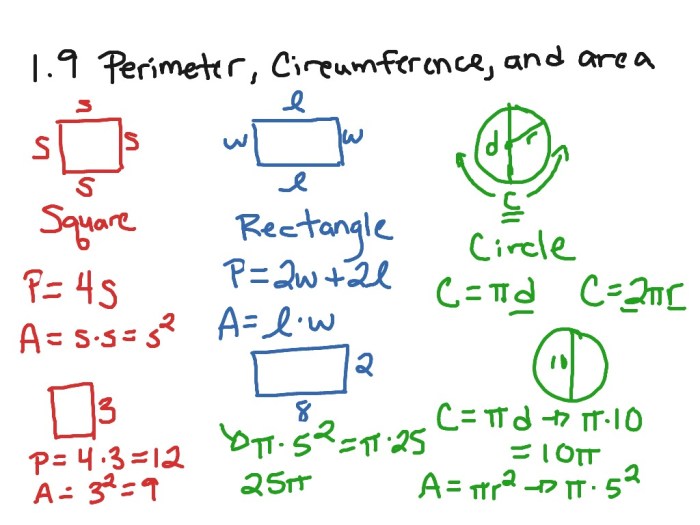 1.9 Perimeter, Circumference, and area
s
s s
s
Square
P = 4s
A = s·s = s²
3
P = 4·3 = 12
A = 3² = 9
l
w w
l
Rectangle
P = 2w + 2l
A = l·w
2
8
π·5² = π·25
25π
d r
C
Circle
C = πd C = 2πr
10
C = πd → π·10
= 10π
A = πr² → π·5²